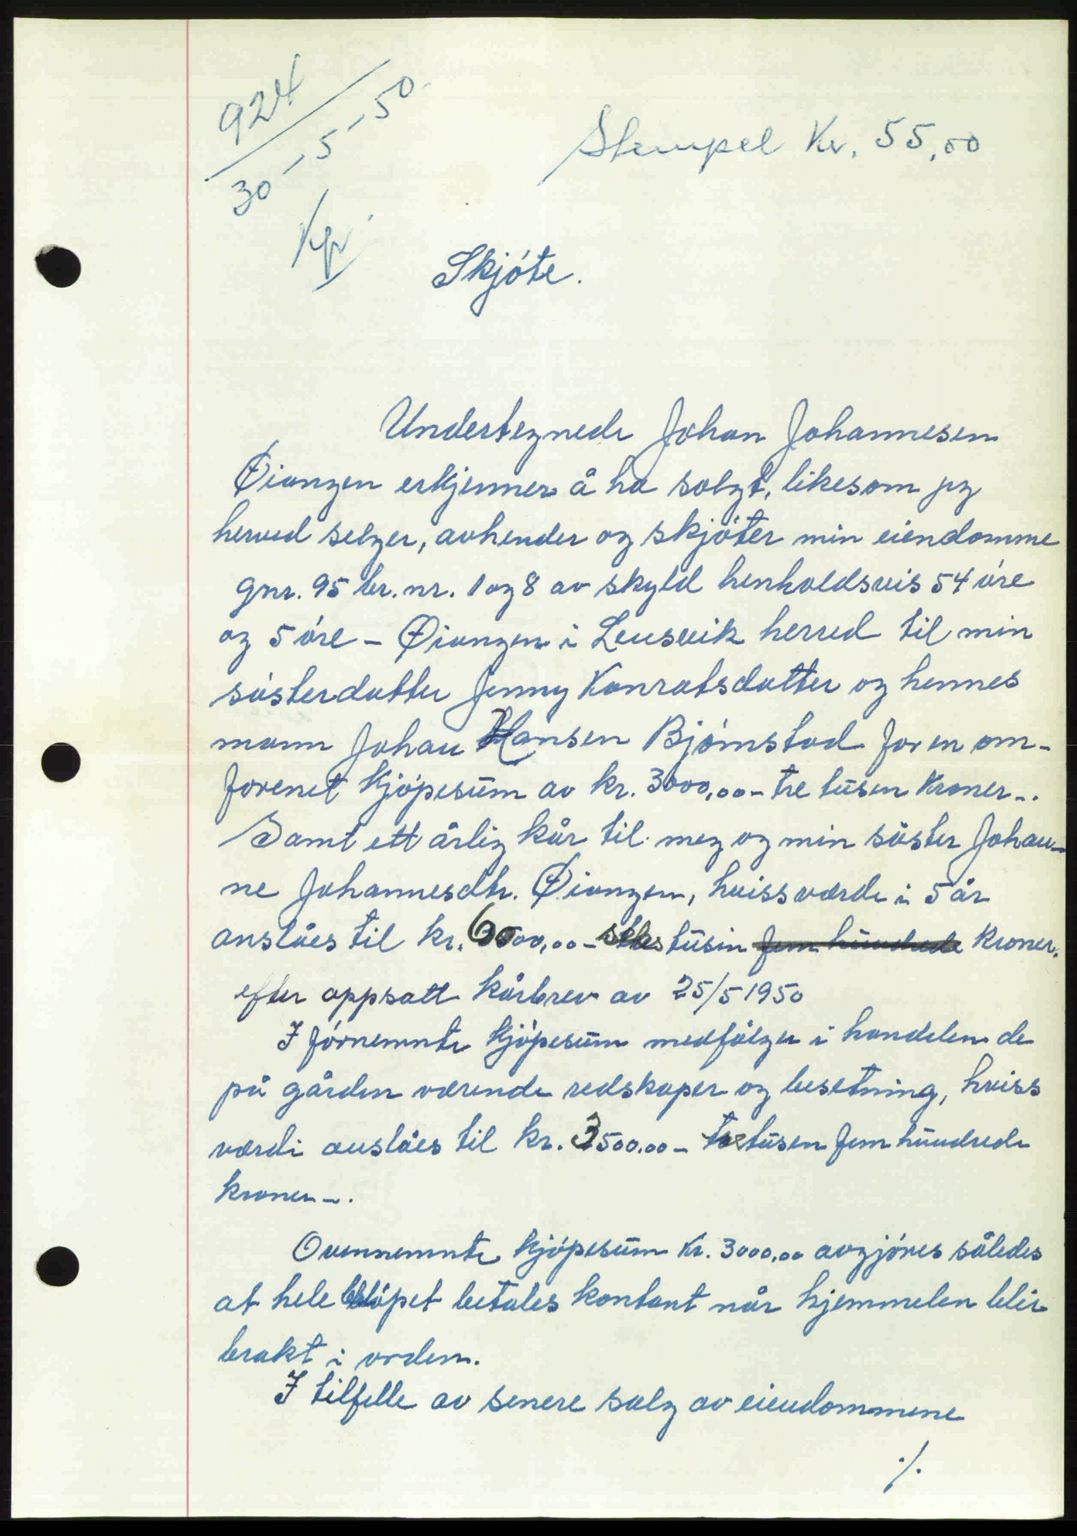 924
30-5-50.
Stempel Kr. 55,00
Skjóte.
Undertegnede Johan Johannesen
Øiangen erkjenner å ha solgt, likesom jeg
herved selger, avhender og skjóter min eiendomme
gnr. 95 br. nr. 1 og 8 av skyld henholdsvis 54 óre
og 5 óre - Øiangen i Leusvik herred til min
sósterdatter Jenny Konratsdatter og hennes
mann Johan Hansen Bjórnstad for en om-
forenet kjópesum av kr. 3000,00 - tre tusen kroner -.
Samt ett årlig kår til meg og min sóster Johan-
ne Johannesdtr. Øiangen, hviss værdi i 5 år
anslåes til kr. 6000,00 - seks tusin fem hundrede kroner.
efter oppsatt kårbrev av 25/5 1950
I fórnemnte kjópesum medfólger i handelen de
på gården værende redskaper og besetning, hviss
værdi anslåes til kr. 3500.00 - tre tusen fem hundrede
kroner -.
Ovennemnte kjópesum kr. 3000,00 avgjóres således
at hele belópet betales kontant når hjemmelen blir
brakt i orden.
I tilfelle av senere salg av eiendommene
./.